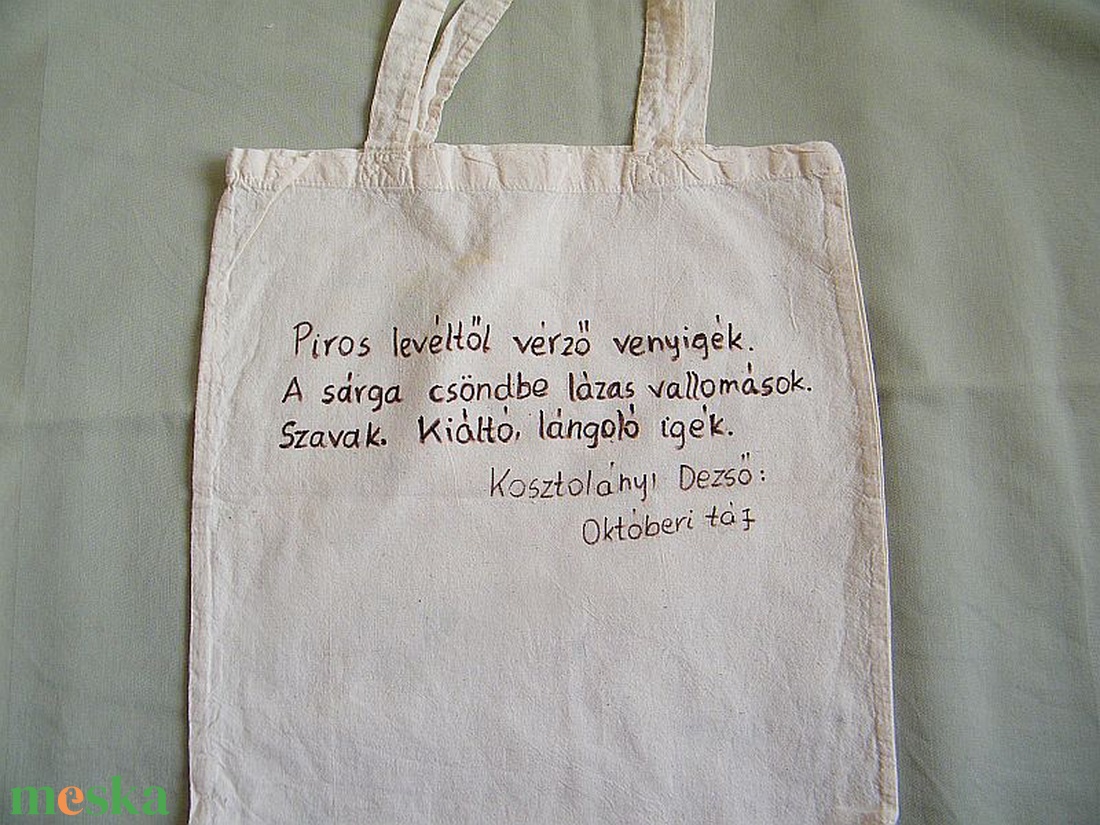 Piros levéltől vérző venyigék.
A sárga csöndbe lázas vallomások.
Szavak. Kiáltó, lángoló igék.
Kosztolányi Dezső:
Októberi táj
meska